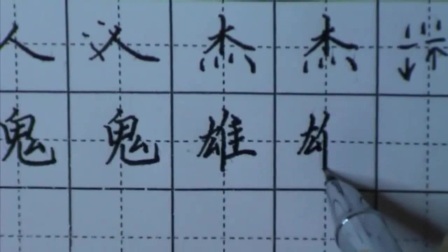 人父杰杰
鬼鬼雄